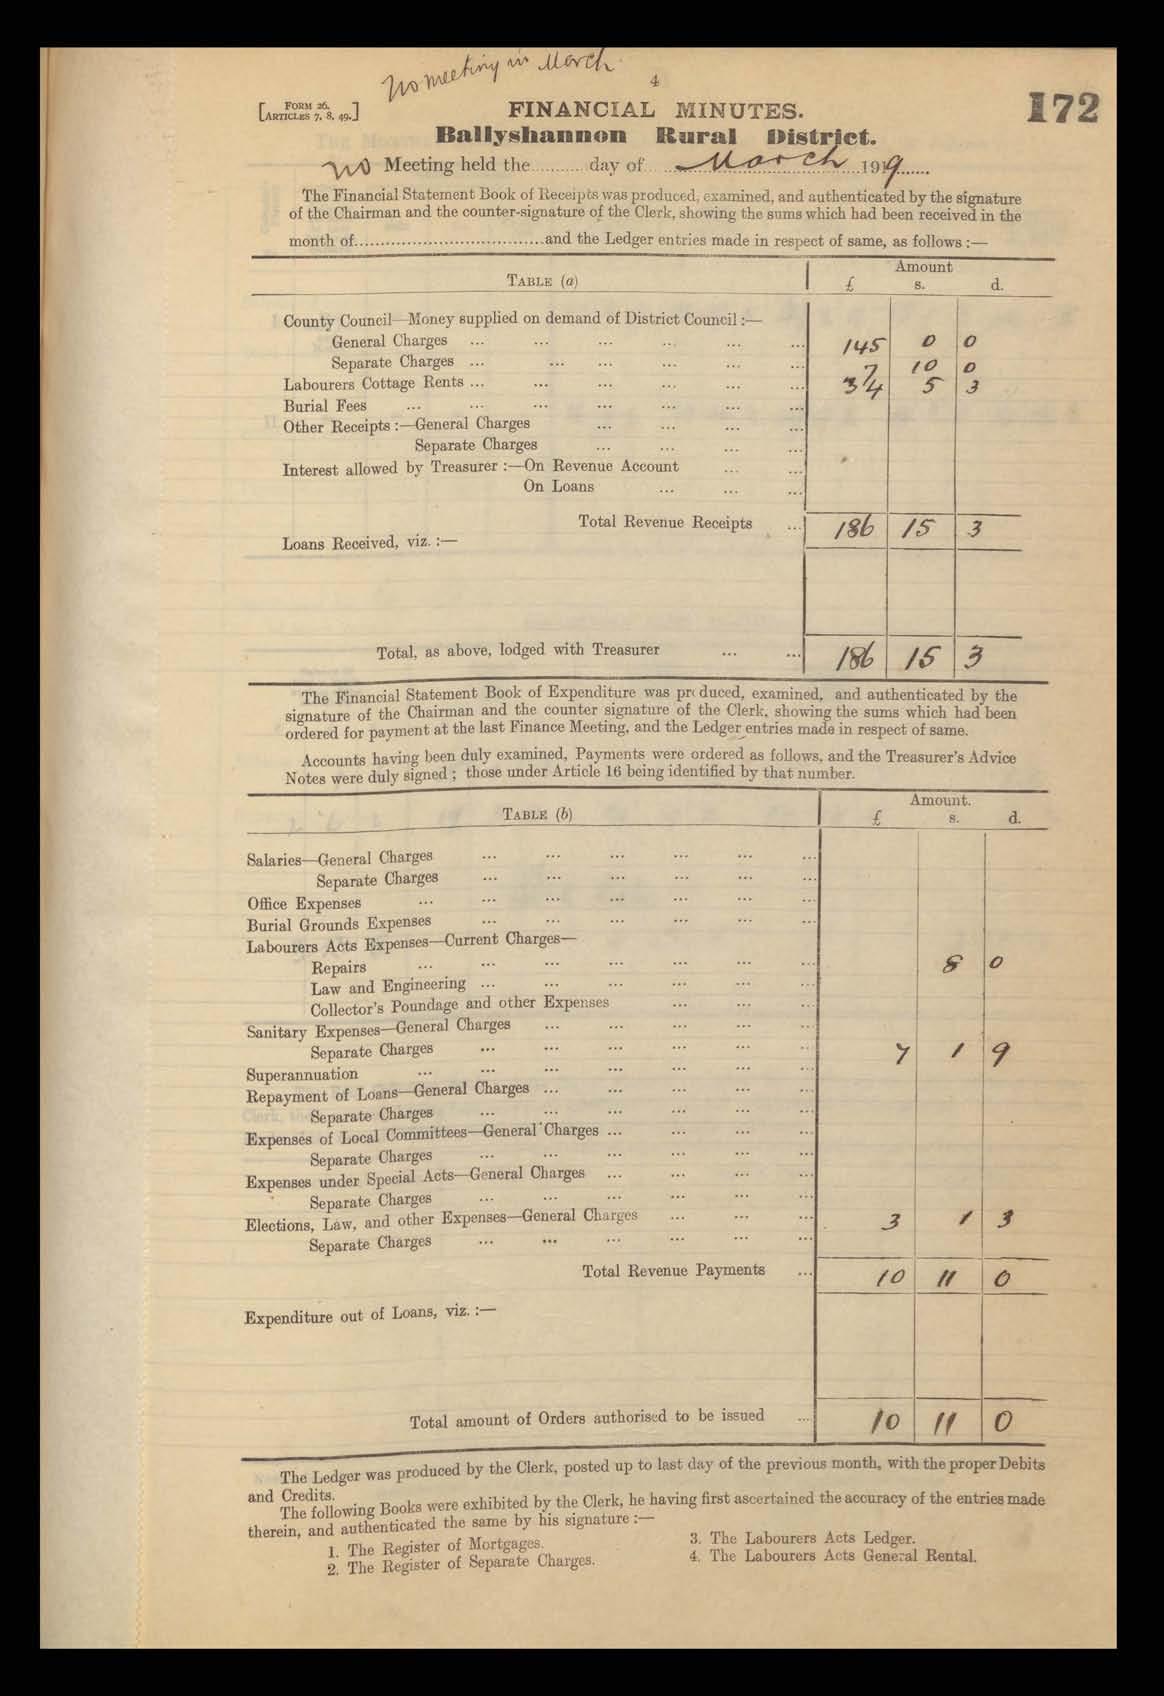 No meeting in March
4
[FORM 26. ARTICLES 7, 8, 49.]
FINANCIAL MINUTES.
172
Ballyshannon Rural District.
No Meeting held the.......... day of...... March ......1919......
The Financial Statement Book of Receipts was produced, examined, and authenticated by the signature
of the Chairman and the counter-signature of the Clerk, showing the sums which had been received in the
month of....................................and the Ledger entries made in respect of same, as follows :—
TABLE (a) Amount
£ s. d.
County Council—Money supplied on demand of District Council :—
General Charges ... ... ... ... ... ... 145 0 0
Separate Charges ... ... ... ... ... ... 7 10 0
Labourers Cottage Rents ... ... ... ... ... ... 34 5 3
Burial Fees ... ... ... ... ... ... ...
Other Receipts :—General Charges ... ... ... ...
Separate Charges ... ... ... ...
Interest allowed by Treasurer :—On Revenue Account ... ...
On Loans ... ... ...
Total Revenue Receipts ... 186 15 3
Loans Received, viz. :—
Total, as above, lodged with Treasurer ... ... 186 15 3
The Financial Statement Book of Expenditure was produced, examined, and authenticated by the
signature of the Chairman and the counter signature of the Clerk, showing the sums which had been
ordered for payment at the last Finance Meeting, and the Ledger entries made in respect of same.
Accounts having been duly examined, Payments were ordered as follows, and the Treasurer's Advice
Notes were duly signed ; those under Article 16 being identified by that number.
TABLE (b) Amount.
£ s. d.
Salaries—General Charges ... ... ... ... ... ...
Separate Charges ... ... ... ... ... ...
Office Expenses ... ... ... ... ... ... ...
Burial Grounds Expenses ... ... ... ... ... ...
Labourers Acts Expenses—Current Charges—
Repairs ... ... ... ... ... ... ... 8 0
Law and Engineering ... ... ... ... ... ...
Collector's Poundage and other Expenses ... ... ...
Sanitary Expenses—General Charges ... ... ... ... ...
Separate Charges ... ... ... ... ... ... 7 1 9
Superannuation ... ... ... ... ... ... ...
Repayment of Loans—General Charges ... ... ... ... ...
Separate Charges ... ... ... ... ... ...
Expenses of Local Committees—General Charges ... ... ... ...
Separate Charges ... ... ... ... ... ...
Expenses under Special Acts—General Charges ... ... ... ...
Separate Charges ... ... ... ... ... ...
Elections, Law, and other Expenses—General Charges ... ... ... 3 1 3
Separate Charges ... ... ... ... ... ...
Total Revenue Payments ... 10 11 0
Expenditure out of Loans, viz. :—
Total amount of Orders authorised to be issued ... 10 11 0
The Ledger was produced by the Clerk, posted up to last day of the previous month, with the proper Debits
and Credits.
The following Books were exhibited by the Clerk, he having first ascertained the accuracy of the entries made
therein, and authenticated the same by his signature :—
1. The Register of Mortgages.
2. The Register of Separate Charges.
3. The Labourers Acts Ledger.
4. The Labourers Acts General Rental.